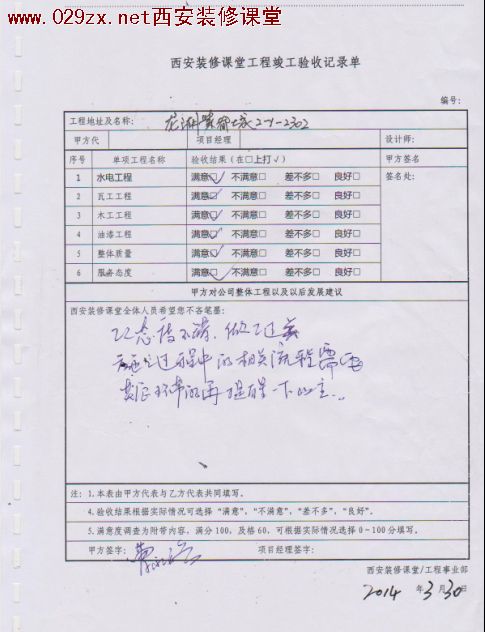 www.029zx.net西安装修课堂
西安装修课堂工程竣工验收记录单
编号:
工程地址及名称: 2-1-2302
甲方代 项目经理 设计师:
序号 单项工程名称 验收结果（在□上打√） 甲方签名
1 水电工程 满意☑ 不满意□ 差不多□ 良好□ 签名处:
2 瓦工工程 满意☑ 不满意□ 差不多□ 良好□
3 木工工程 满意☑ 不满意□ 差不多□ 良好□
4 油漆工程 满意☑ 不满意□ 差不多□ 良好□
5 整体质量 满意☑ 不满意□ 差不多□ 良好□
6 服务态度 满意☑ 不满意□ 差不多□ 良好□
甲方对公司整体工程以及以后发展建议
西安装修课堂全体人员希望您不吝笔墨:
态度不错.
过程中的相关流程需
的再提醒一下
注: 1.本表由甲方代表与乙方代表共同填写。
4.验收结果根据实际情况可选择“满意”,“不满意”,“差不多”,“良好”。
5.满意度调查为附带内容，满分100，及格60，可根据实际情况选择0～100分填写。
甲方签字: 项目经理签字:
西安装修课堂/工程事业部
2014 年 3 月 30 日